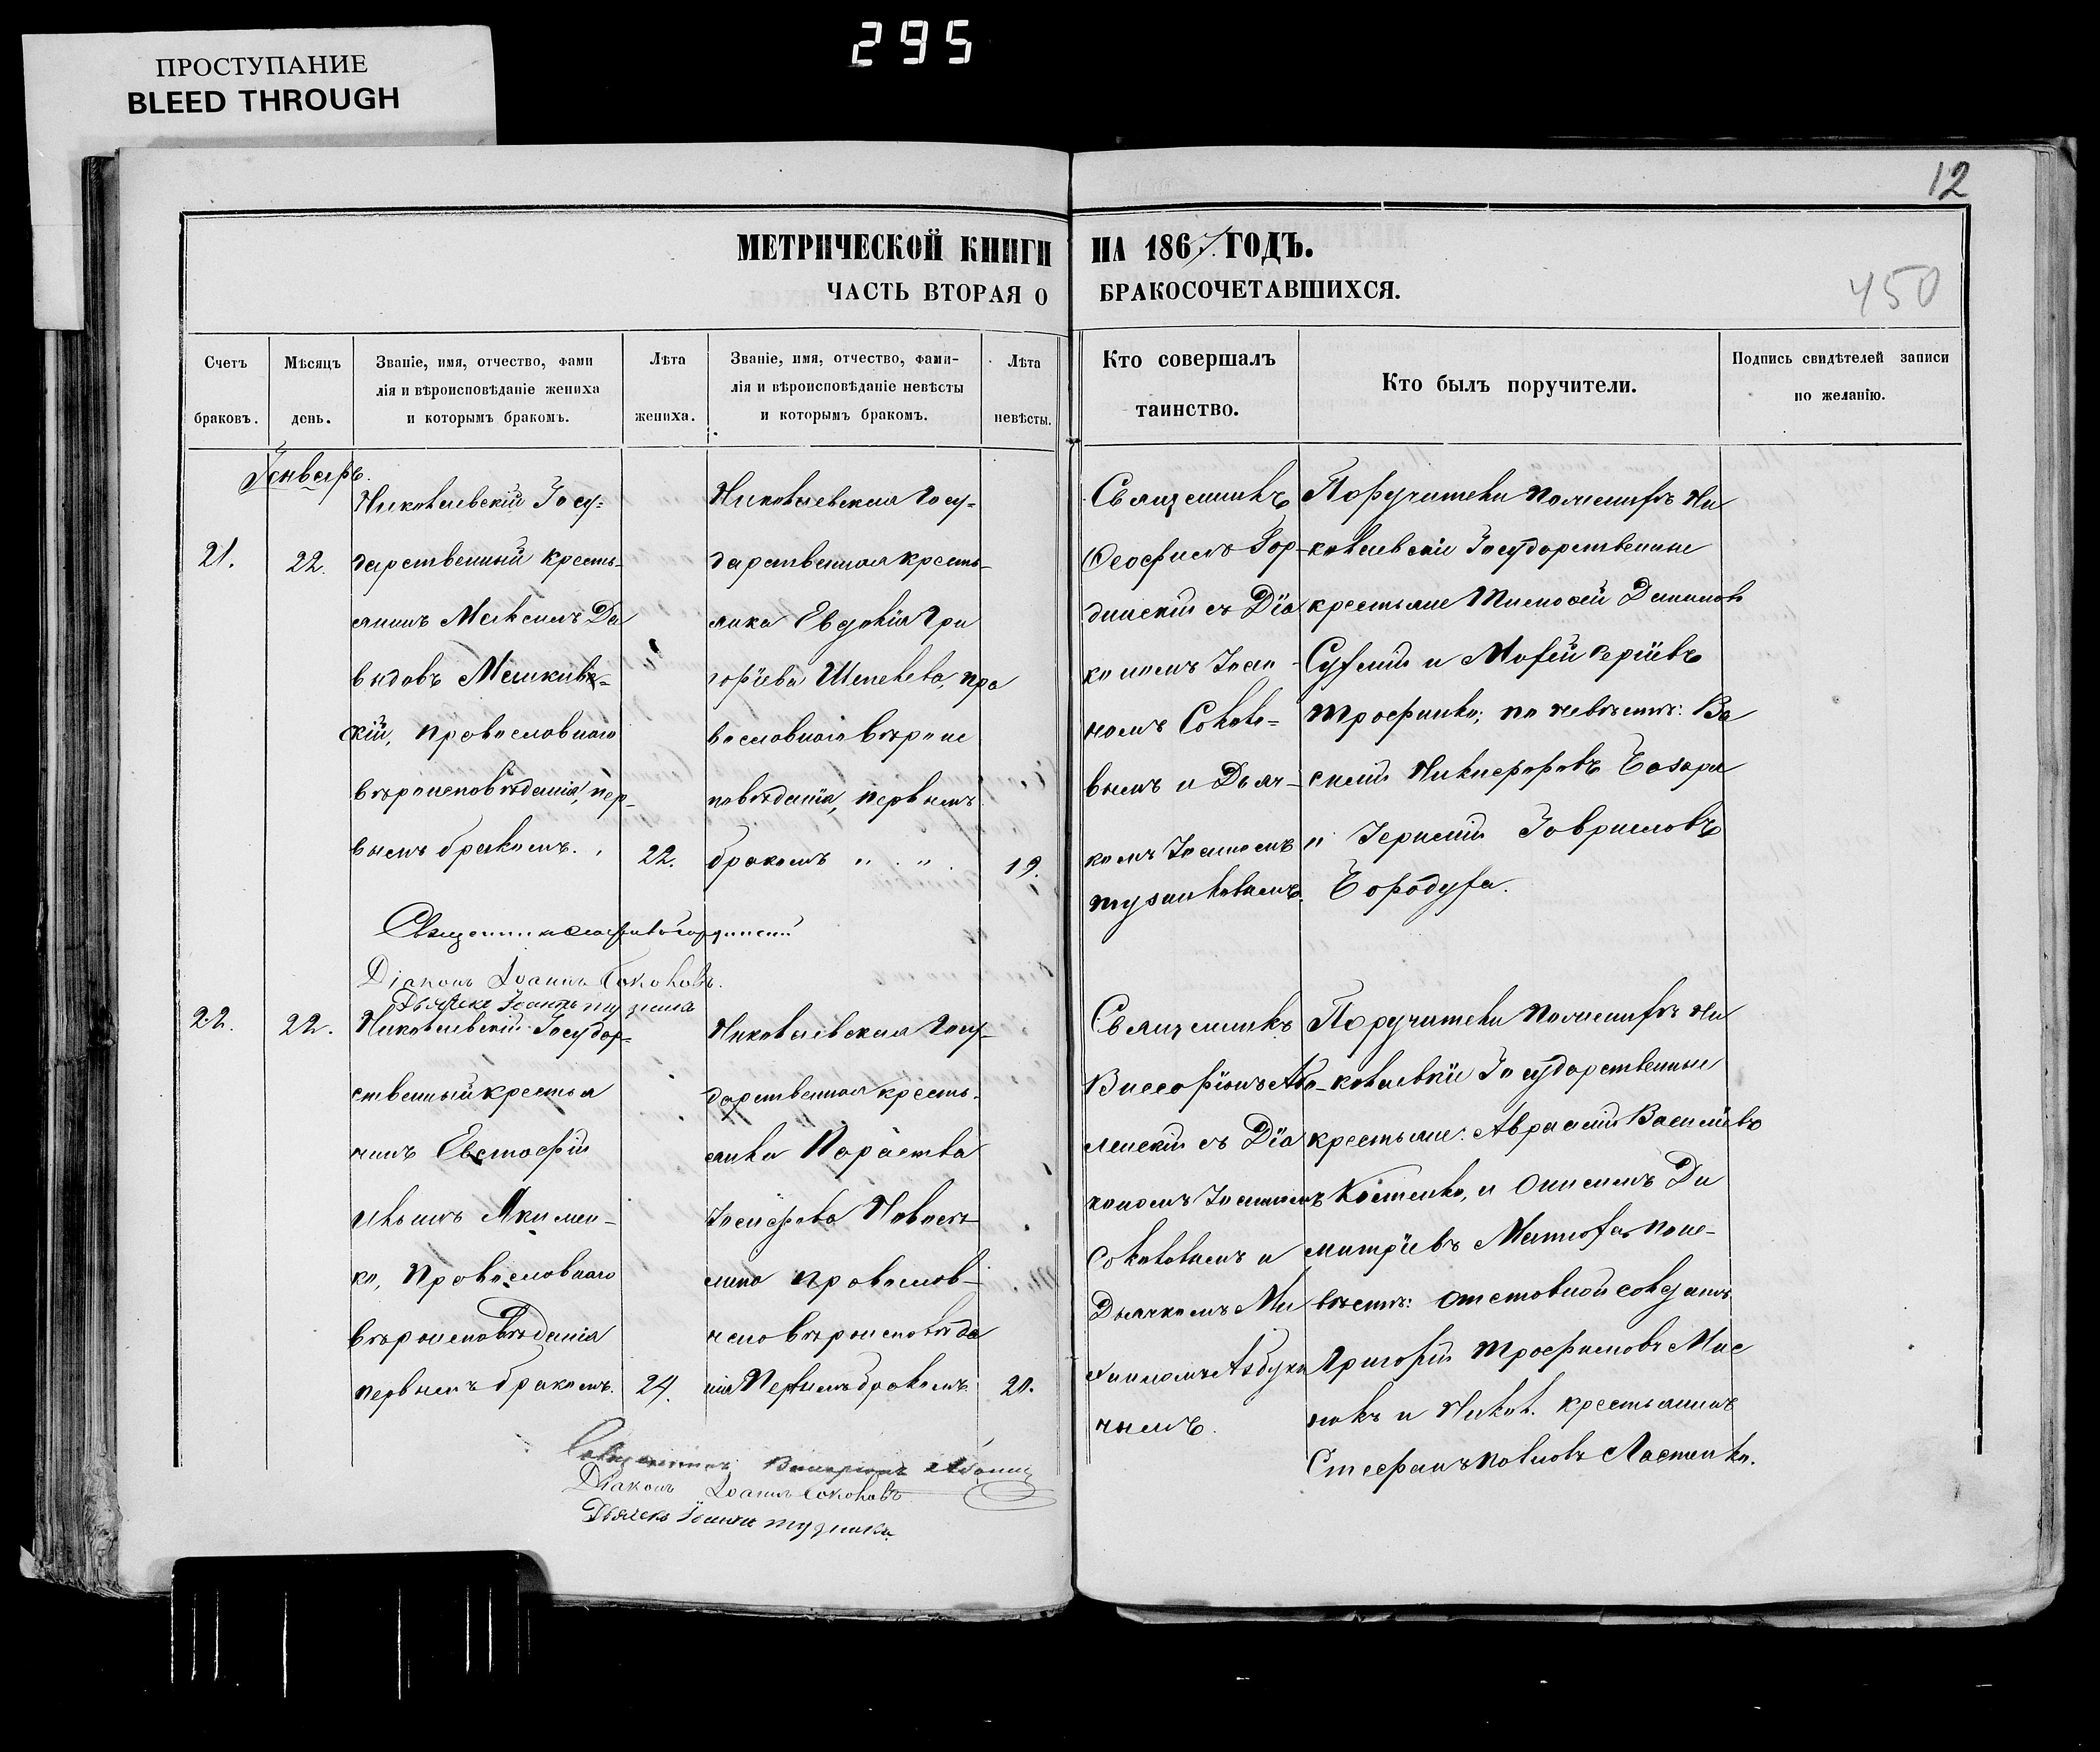 295
ПРОСТУПАНИЕ
BLEED THROUGH
12
МЕТРИЧЕСКОЙ КНИГИ НА 1867. ГОДЪ.
ЧАСТЬ ВТОРАЯ О БРАКОСОЧЕТАВШИХСЯ.
450
Счетъ браковъ.
Мѣсяцъ день.
Званіе, имя, отчество, фами
лія и вѣроисповѣданіе жениха
и которымъ бракомъ.
Лѣта жениха.
Званіе, имя, отчество, фами-
лія и вѣроисповѣданіе невѣсты
и которымъ бракомъ.
Лѣта невѣсты.
Кто совершалъ
таинство.
Кто былъ поручители.
Подпись свидѣтелей записи
по желанію.
Генварь.
21.
22.
Николаевскій Госу=
дарственный кресть-
янинъ Максимъ Да
видовъ
скій, православнаго
вѣроисповѣданія, пер-
вымъ бракомъ.
22.
Николаевская Госу-
дарственная кресть-
янка Евдокія Гри
горіева Шепелева, пра
вославнаго вѣроис
повѣданія, первымъ
бракомъ " "
19.
Священникъ
Ѳеофилъ Гор-
динскій съ Діа
кономъ Іоан-
номъ Соколо=
вымъ и Дьяч-
комъ Іоанномъ
Поручители по женихѣ Ни
колаевскіе Государственные
крестьяне Тимофей
и Мофей Сергіевъ
Трофимко; по невѣстѣ: Ва
силій Никифоровъ
и Герасимъ Гавриловъ
Бородура.
Діаконъ Іоаннъ Соколовъ.
22.
22.
Николаевскій Государ=
ственный крестья
нинъ Евстафій
Ивановъ Якимен-
ко, Православнаго
вѣроисповѣданія
первымъ бракомъ.
24.
Николаевская Госу-
дарственная кресть-
янка Параскева
Іосифова
православ-
наго вѣроисповѣда
нія Первымъ бракомъ
20.
Священникъ
Виссаріонъ Або-
ленскій съ Діа
кономъ Іоанномъ
Соколовымъ и
Дьячкомъ Ми
хаиломъ Азбуки
нымъ.
Поручители по женихѣ Ни
колаевскіе Государственные
крестьяне: Аврамій Васильевъ
Костенко, и Онисимъ Ди
митріевъ по не-
вѣстѣ: отставной солдатъ
Григорій Трофимовъ
и Никол. крестьянинъ
Стефанъ Павловъ Ластенко.
Діаконъ Іоаннъ Соколовъ